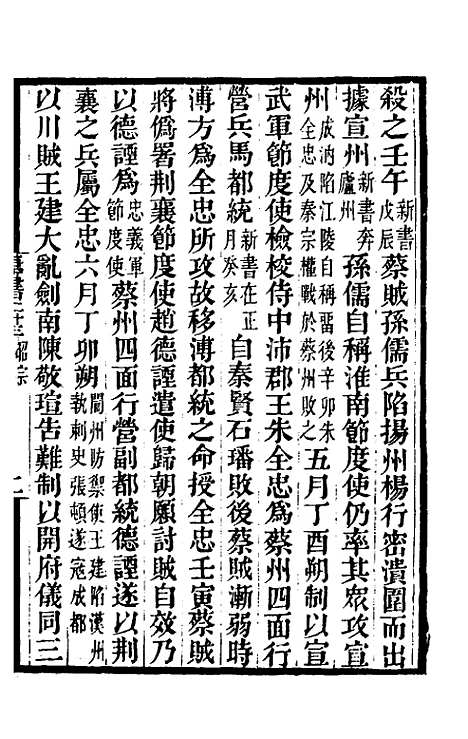 殺之壬午新書戊辰蔡賊孫儒兵陷揚州楊行密潰圍而出
據宣州新書奔廬州孫儒自稱淮南節度使仍率其眾攻宣
州成汭陷江陵自稱留後辛卯朱全忠及秦宗權戰於蔡州敗之五月丁酉朔制以宣
武軍節度使檢校侍中沛郡王朱全忠為蔡州四面行
營兵馬都統新書在正月癸亥自秦賢石璠敗後蔡賊漸弱時
溥方為全忠所攻故移溥都統之命授全忠壬寅蔡賊
將僞署荆襄節度使趙德諲遣使歸朝願討賊自效乃
以德諲為忠義軍節度使蔡州四面行營副都統德諲遂以荆
襄之兵屬全忠六月丁卯朔閬州防禦使王建陷漢州執刺史張頓遂寇成都
以川賊王建大亂劍南陳敬瑄告難制以開府儀同三
昭宗